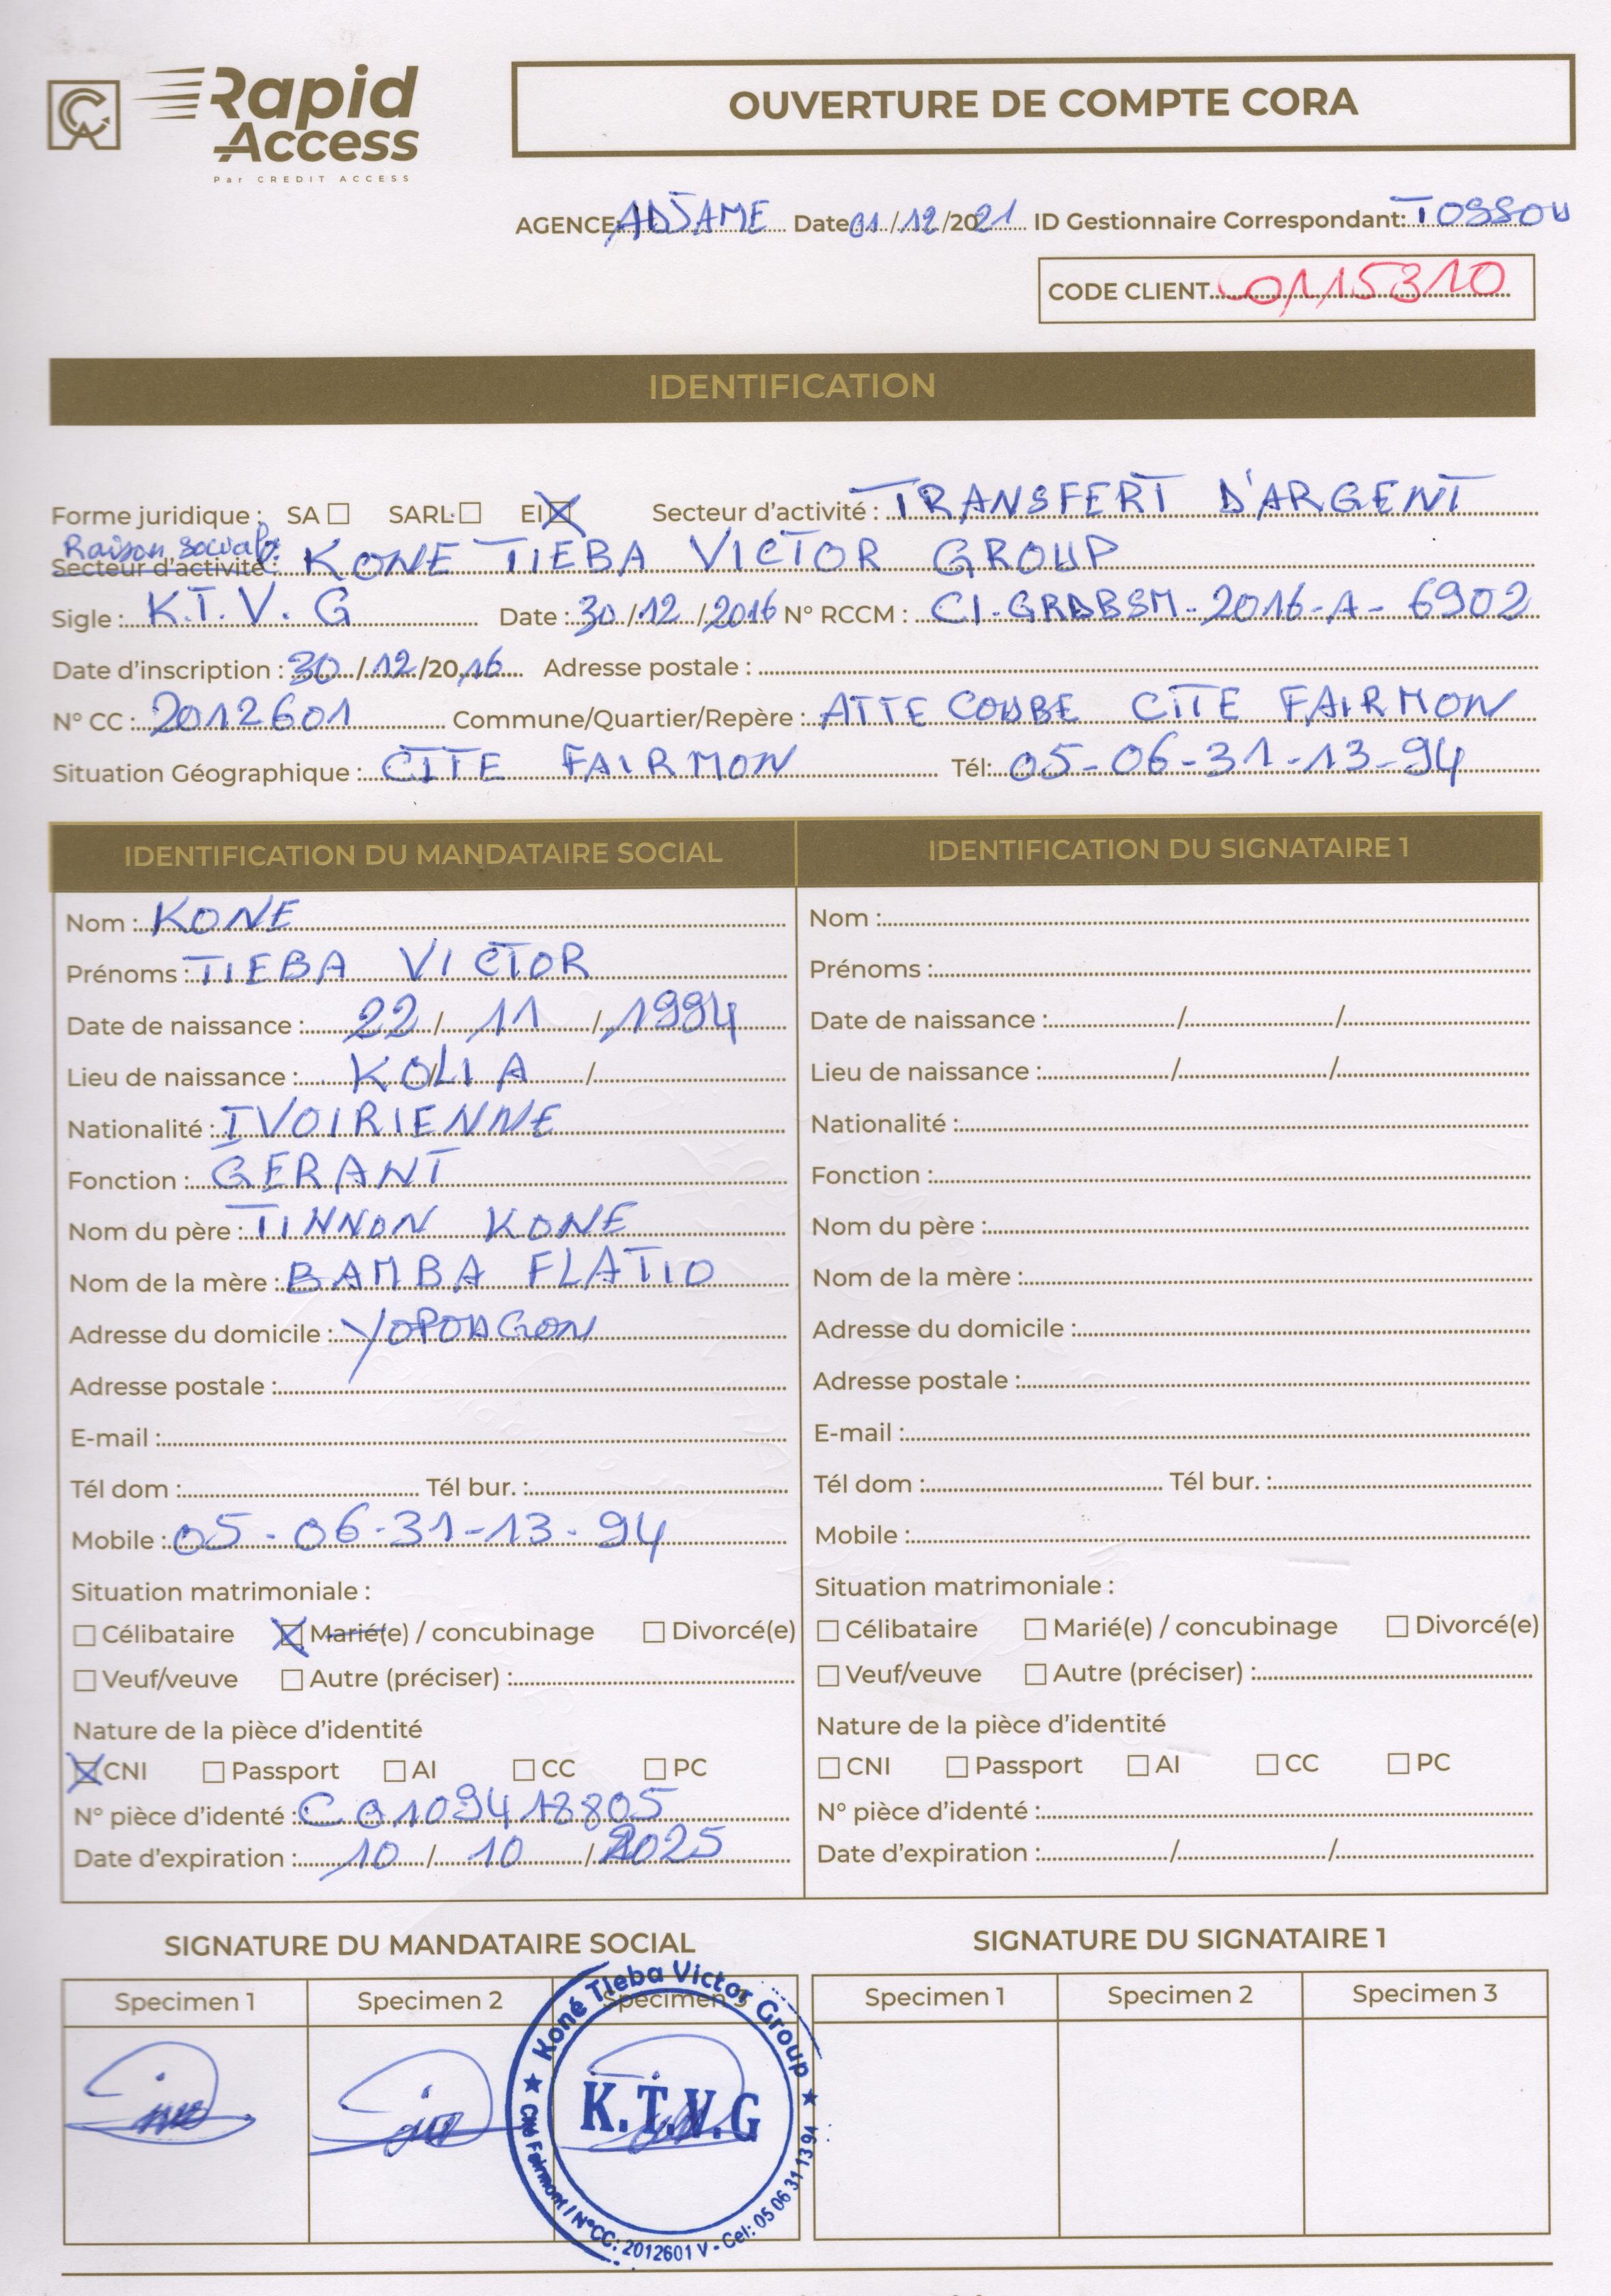 Rapid
Access
Par CREDIT ACCESS
OUVERTURE DE COMPTE CORA
AGENCE: ADJAME Date 01/12/2021 ID Gestionnaire Correspondant: TOSSOU
CODE CLIENT 0115310
IDENTIFICATION
Forme juridique : SA ☐ SARL ☐ EI ☒ Secteur d'activité : TRANSFERT D'ARGENT
Raison sociale:
Secteur d'activité : KONE TIEBA VICTOR GROUP
Sigle : K.T.V.G Date : 30/12/2016 N° RCCM : CI-GRDBSM-2016-A-6902
Date d'inscription : 30/12/2016 Adresse postale :
N° CC : 2012601 Commune/Quartier/Repère : ATTE COUBE CITE FAIRMON
Situation Géographique : CITE FAIRMON Tél: 05-06-31-13-94
IDENTIFICATION DU MANDATAIRE SOCIAL
Nom : KONE
Prénoms : TIEBA VICTOR
Date de naissance : 22/11/1994
Lieu de naissance : KOLIA
Nationalité : IVOIRIENNE
Fonction : GERANT
Nom du père : TINNON KONE
Nom de la mère : BAMBA FLATIO
Adresse du domicile : YOPOUGON
Adresse postale :
E-mail :
Tél dom : Tél bur. :
Mobile : 05-06-31-13-94
Situation matrimoniale :
☐ Célibataire ☒ Marié(e) / concubinage ☐ Divorcé(e)
☐ Veuf/veuve ☐ Autre (préciser) :
Nature de la pièce d'identité
☒ CNI ☐ Passport ☐ AI ☐ CC ☐ PC
N° pièce d'identé : C 0109418805
Date d'expiration : 10/10/2025
IDENTIFICATION DU SIGNATAIRE 1
Nom :
Prénoms :
Date de naissance : / /
Lieu de naissance : / /
Nationalité :
Fonction :
Nom du père :
Nom de la mère :
Adresse du domicile :
Adresse postale :
E-mail :
Tél dom : Tél bur. :
Mobile :
Situation matrimoniale :
☐ Célibataire ☐ Marié(e) / concubinage ☐ Divorcé(e)
☐ Veuf/veuve ☐ Autre (préciser) :
Nature de la pièce d'identité
☐ CNI ☐ Passport ☐ AI ☐ CC ☐ PC
N° pièce d'identé :
Date d'expiration : / /
SIGNATURE DU MANDATAIRE SOCIAL
Specimen 1 Specimen 2 Specimen 3
Koné Tieba Victor Group
K.T.V.G
Cité Fairmont / N°CC: 2012601 V - Cel: 05 06 31 13 94
SIGNATURE DU SIGNATAIRE 1
Specimen 1 Specimen 2 Specimen 3